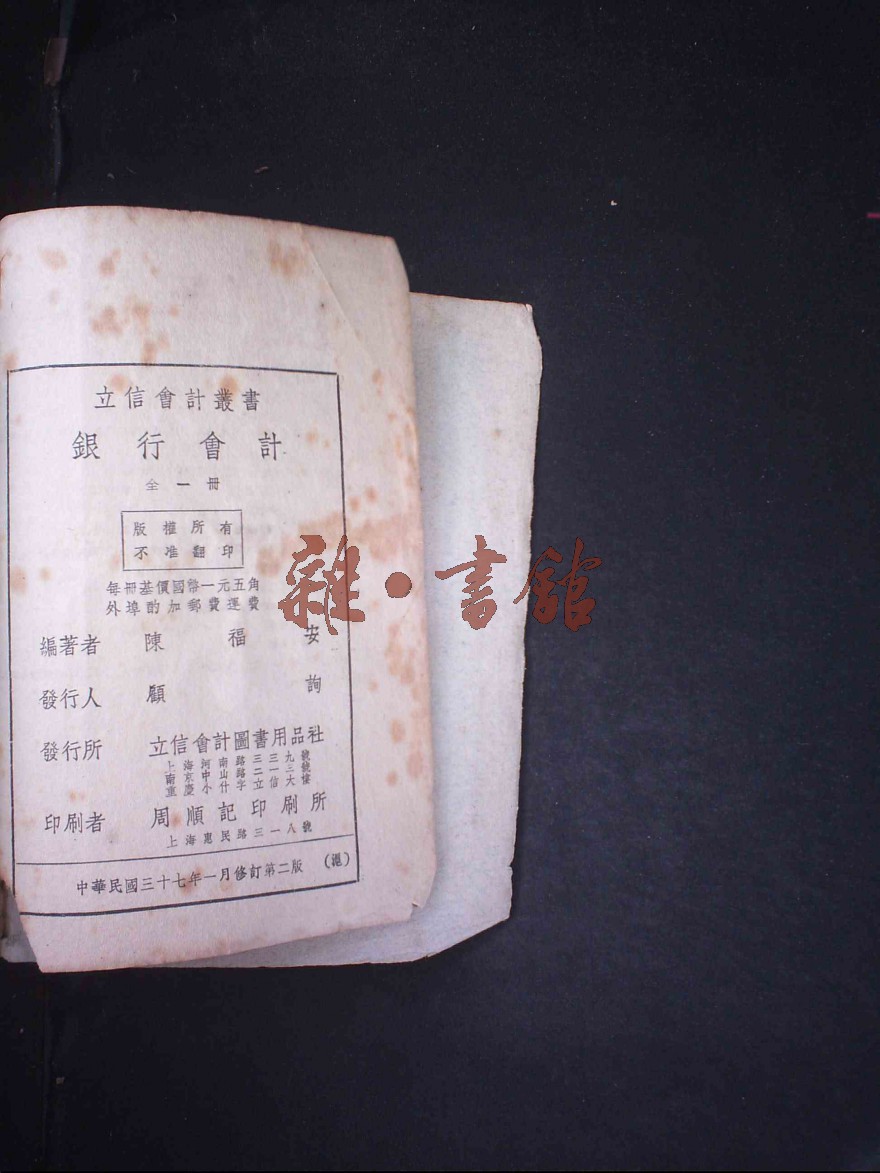 立信會計叢書
銀行會計
全一冊
版權所有
不准翻印
每冊基價國幣一元五角
外埠酌加郵費運費
編著者 陳福安
發行人 顧詢
發行所 立信會計圖書用品社
上海河南路三三九號
南京中山路二一三號
重慶小什字立信大樓
印刷者 周順記印刷所
上海惠民路三一八號
中華民國三十七年一月修訂第二版 (滬)
雜·書館